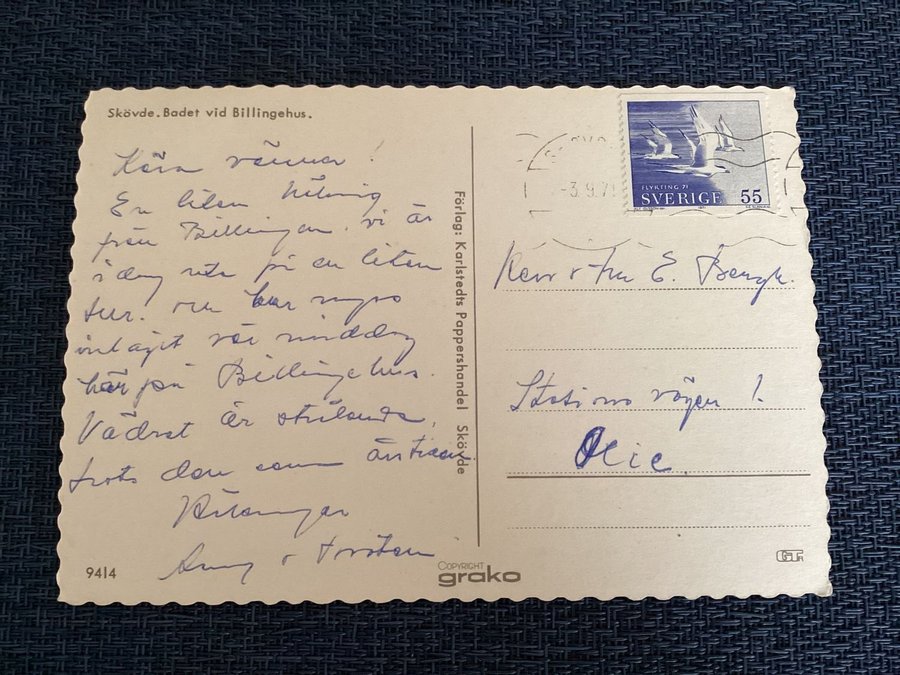 Skövde. Badet vid Billingehus.
Kära vänner!
En liten hälsning
från Billingen. vi är
i dag ute på en liten
tur. nu har nyss
intagit vår middag
här på Billingehus.
Vädret är strålande,
trots den sena årstiden
Hälsningar
Anny o Torsten
9414
Förlag: Karlstedts Pappershandel Skövde
COPYRIGHT
grako
-3.9.71
FLYKTING 71
SVERIGE 55
Herr o Fru E. Bengt.
Stationsvägen 1.
Oxie